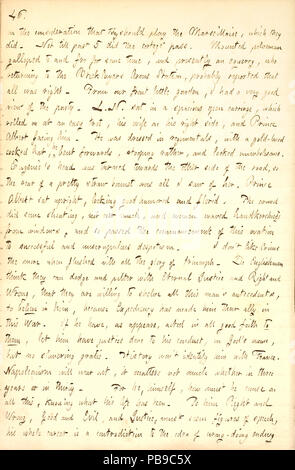 46.
in the consideration that they should play the Marseillaise, which they
did. Not till past 5 did the cortège pass. Mounted policemen
gallopped to and fro for some time, and presently an equerry, who
returning to the Bricklayers Arms Station, probably reported that
all was right. From our front little garden, I had a very good
view of the party. L. N. sat in a spacious open carriage, which
rolled on at an easy trot, his wife at his right side, and Prince
Albert facing him. He was dressed in regimentals, with a gold-laced
cocked hat, bent forwards, stooping rather, and looked unwholesome.
Eugenie's head was turned towards the other side of the road, so
the rear of a pretty straw bonnet was all I saw of her. Prince
Albert sat upright, looking good humored and florid. The crowd
did some shouting, not very much, and women waved handkerchiefs
from windows, and so passed the commencement of their ovation
to successful and unscrupulous despotism. I don't like Crime
the more when flushed with all the glory of triumph. Do Englishmen
think they can dodge and palter with Eternal Justice and Right and
Wrong, that they are willing to swallow all this man's antecedents,
to believe in him, because Expediency has made him their ally in
this War. If he have, as appears, acted in all good faith to
them, let him have justice done to his conduct, in God's name,
but no swearing praise. History won't identify him with France.
Napoleonism will wear out, it matters not much whether in three
years or in thirty. For he, himself, how must he sneer at
all this, knowing what his life has been. To him Right and
Wrong, Good and Evil, and Justice, must seem figures of speech,
his whole career is a contradiction to the idea of wrong-doing ending
alamy
Image ID: PB9C5X
www.alamy.com